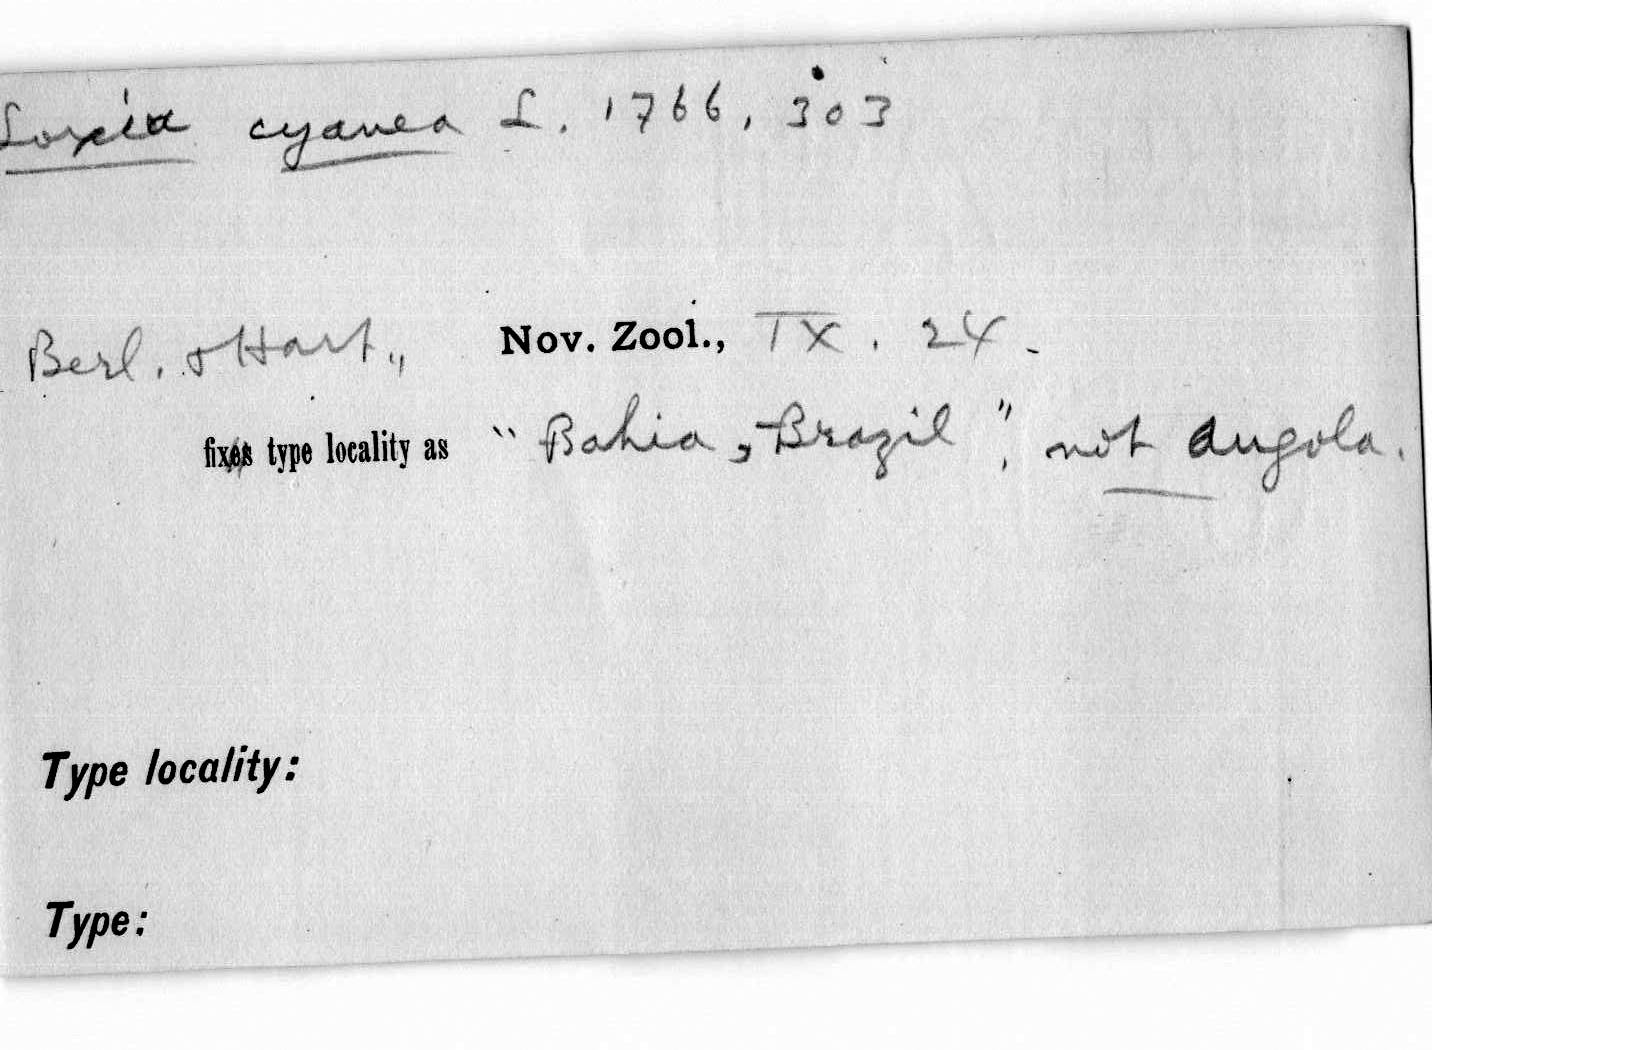 Loxia cyanea L. 1766, 303
Berl. & Hart., Nov. Zool., IX. 24.
fix type locality as "Bahia, Brazil", not Angola.
Type locality:
Type: